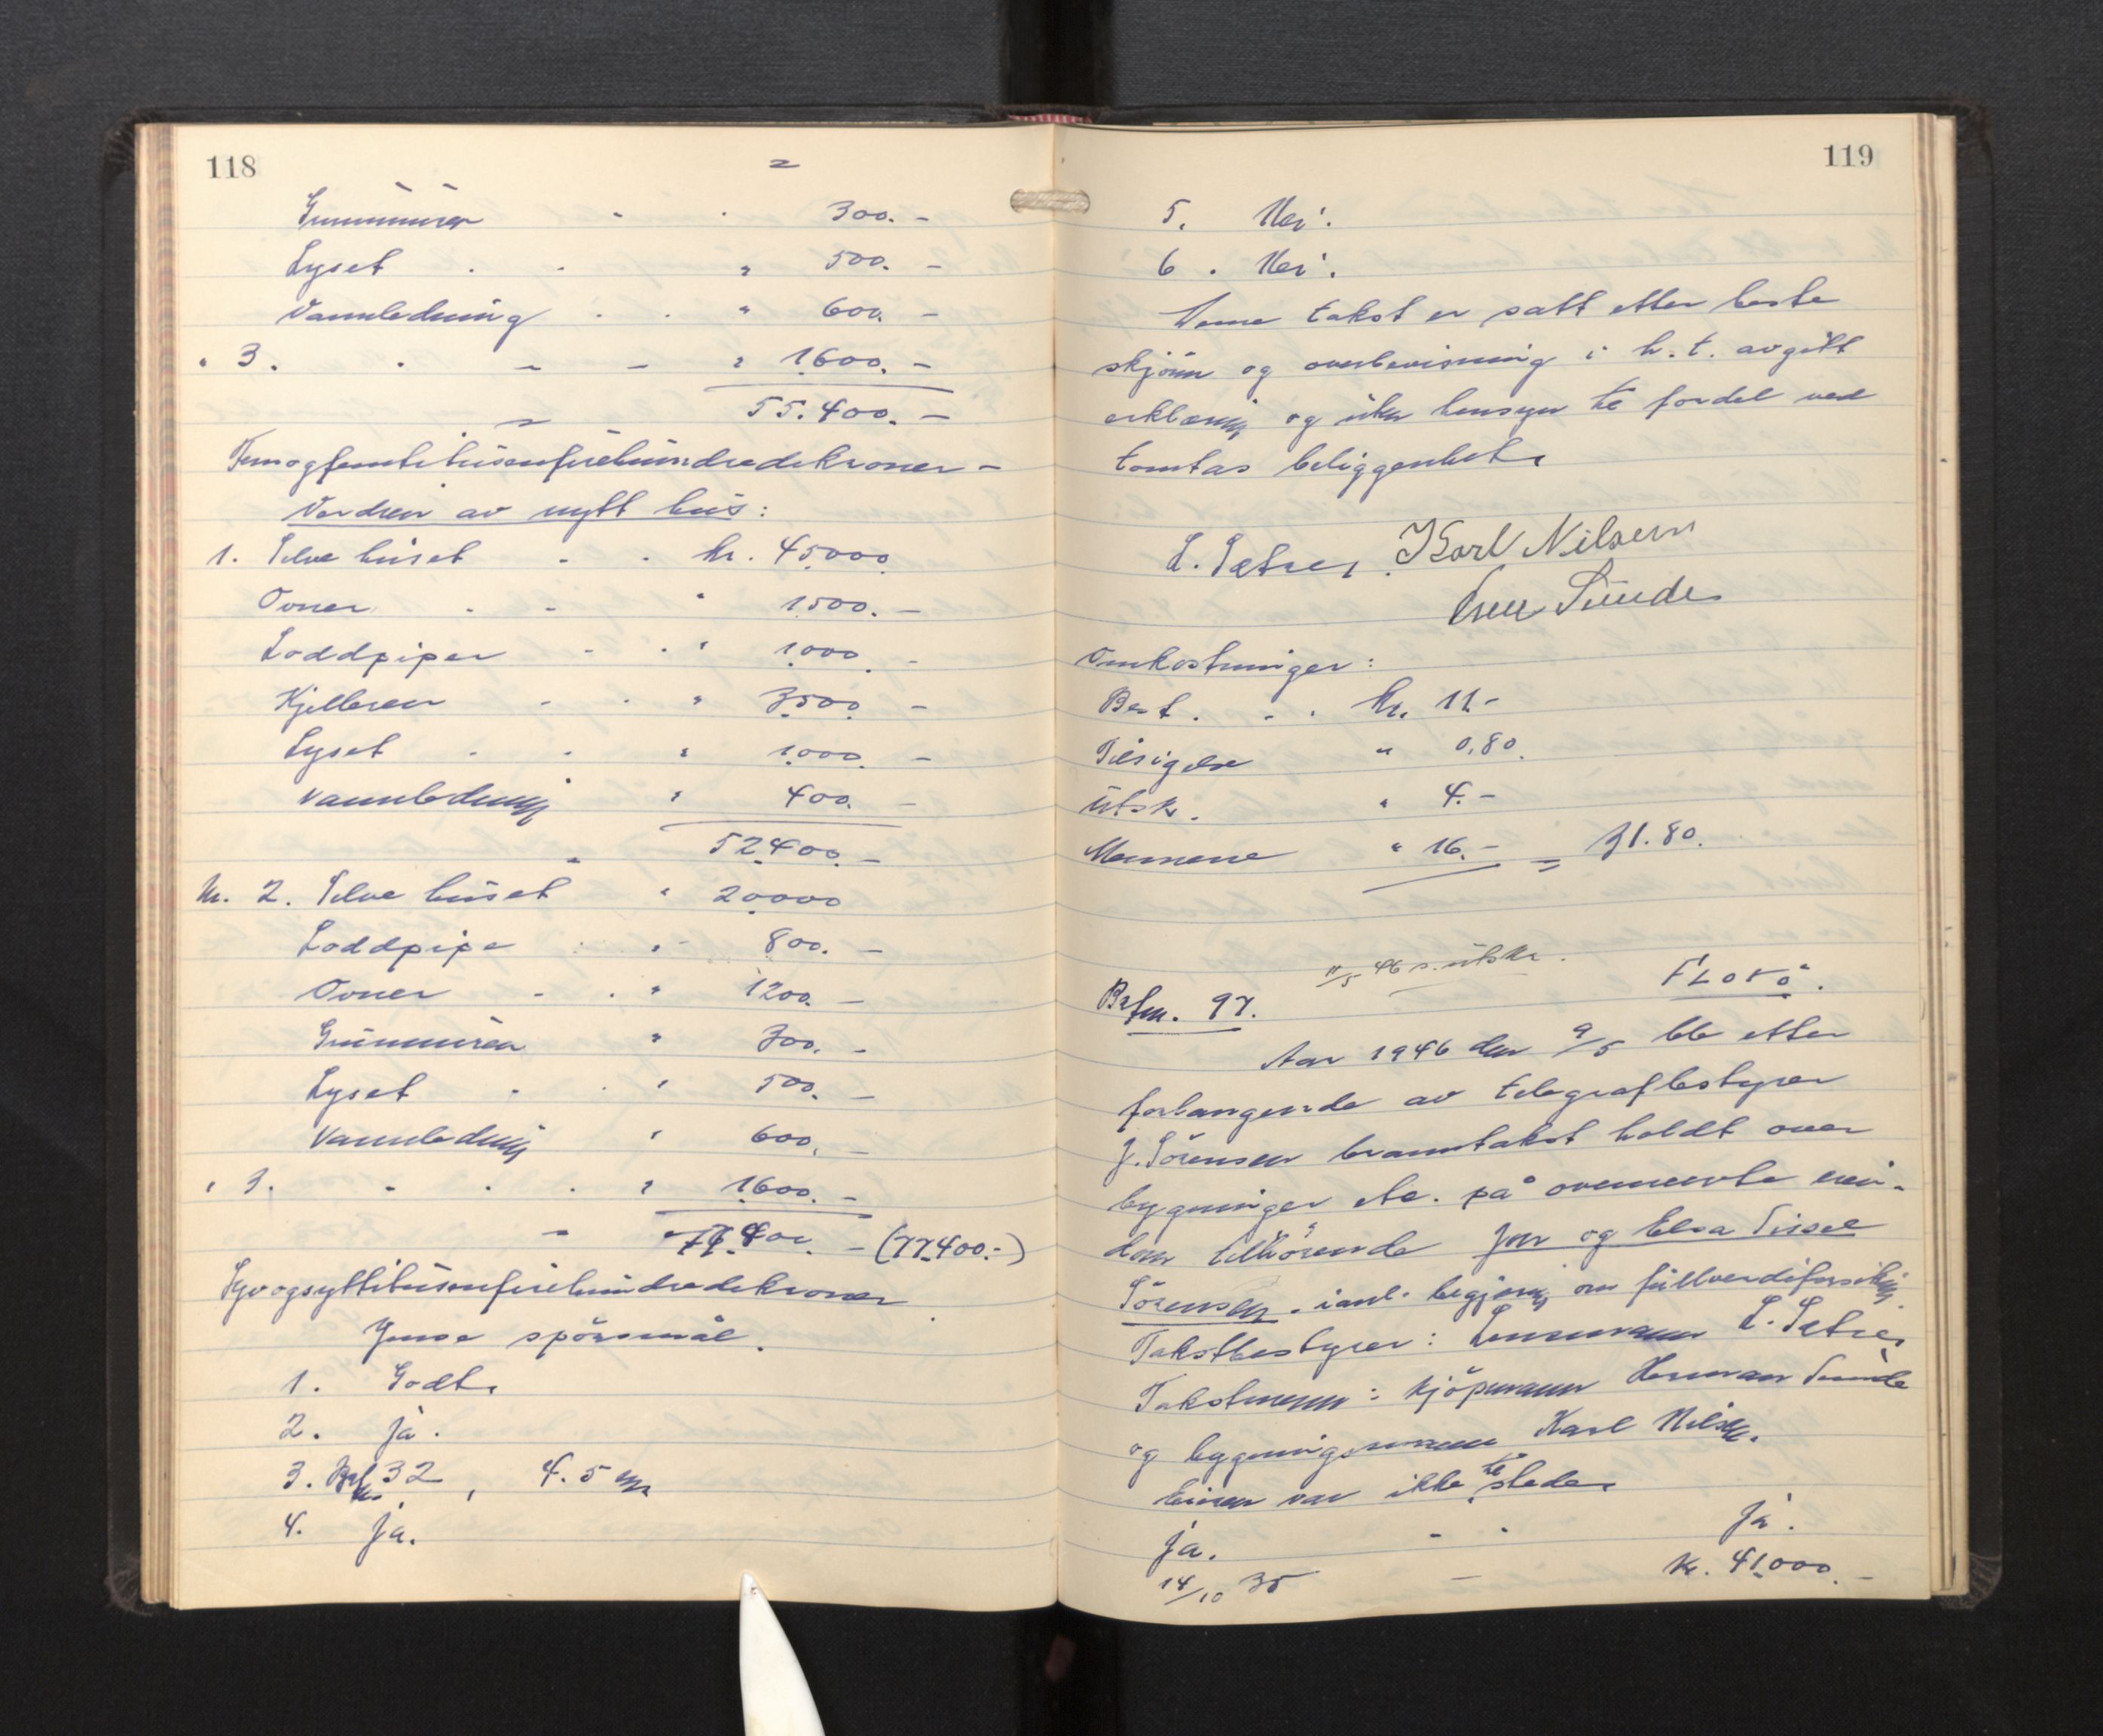 118
Grunnmuren . . 300.-
Lyset . . " 500.-
Vannledning . . " 600.-
" 3. . - - " 1600.-
55.400.-
Femogfemtitusenfirehundredekroner -
Verdien av nytt hus:
1. Selve huset - . kr. 45000
Ovner . - " 1500.-
Loddpiper - . " 1000.-
Kjelleren - . " 3500.-
Lyset . . " 1000.-
Vannledning " 400.-
52400.-
Nr. 2. Selve huset " 20000
Loddpipe . . - 800.-
Ovner - . " 1200.-
Grunnmuren " 300.-
Lyset . . " 500.-
Vannledning " 600.-
" 3. - . . " 1600.-
77.400.- (77.400.-)
Syvogsyttitusenfirehundredekroner.
Ymse spörsmål.
1. Godt.
2. Ja.
3. Brf.nr. 32, 4.5 m.
4. Ja.
119
5. Nei.
6. Nei.
Denne takst er satt etter beste
skjönn og overbevisning i h.t. avgitt
erklæring og uten hensyn til fordel ved
tomtas beliggenhet.
L. Sætren. Karl Nilsen
Sunde
Omkostninger:
Best. . - . kr. 11.-
Tilsigelse " 0.80.
Utsk. " 4.-
Mennene " 16.- = 31.80.
11/5 46 s. utskr.
Brfnr. 97. FLORÖ.
Aar 1946 den 9/5 ble etter
forlangende av telegrafbestyrer
J. Sörensen branntakst holdt over
bygninger etc. på ovennevnte eien-
dom tilhörende Jon og Elsa Sissel
Sörensen. ianl. begjæring om fullverdiforsikring.
Takstbestyrer: Lensmann L. Sætren
Takstmenn: kjöpmann Herman Sunde
og bygningsmann Karl Nilsen.
Eieren var ikke til stede.
Ja. - . Ja.
14/10 35 - kr. 41.000.-